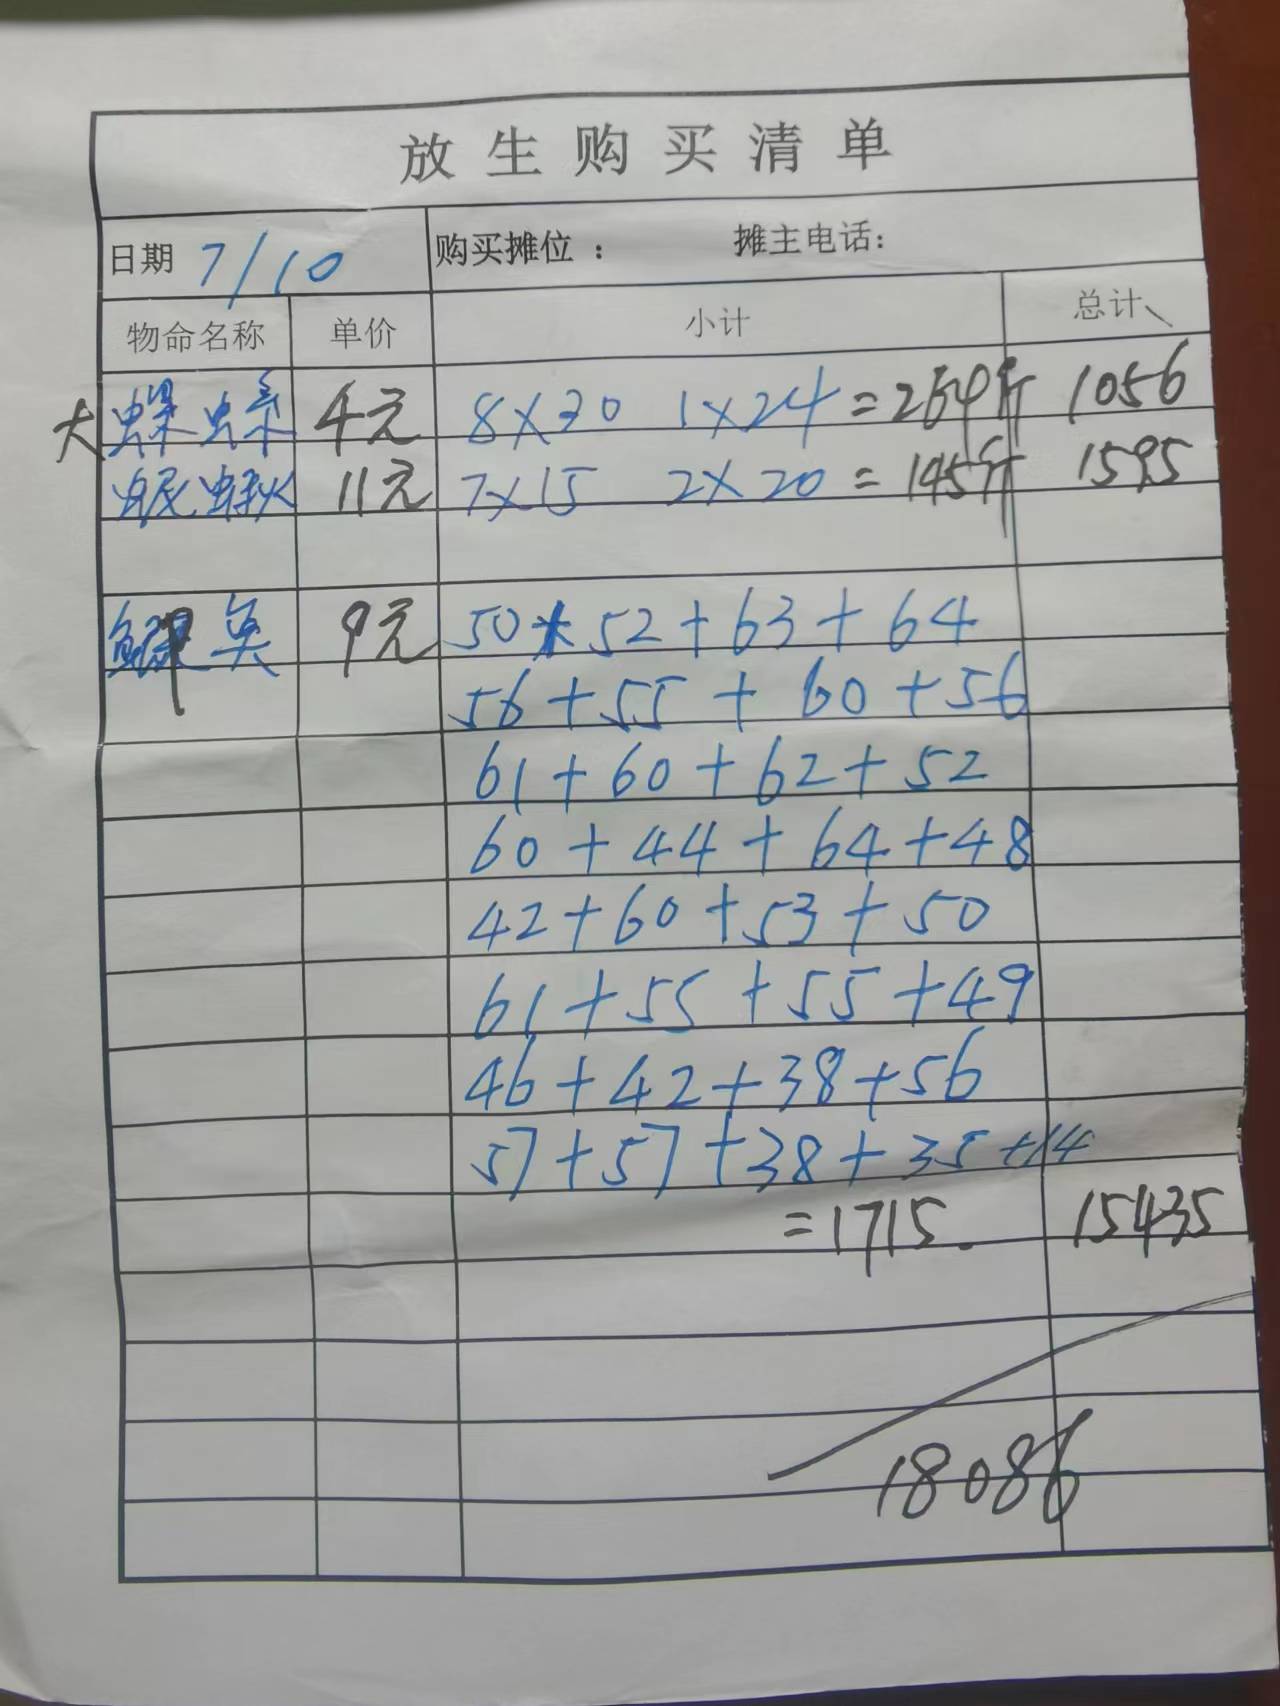 放生购买清单
日期 7/10 购买摊位： 摊主电话：
物命名称 单价 小计 总计
大螺蛳 4元 8×30 1×24 = 264斤 1056
泥鳅 11元 7×15 2×20 = 145斤 1595
鱼 9元 50+52+63+64
56+55+60+56
61+60+62+52
60+44+64+48
42+60+53+50
61+55+55+49
46+42+38+56
57+57+38+35+14
=1715. 15435
18086